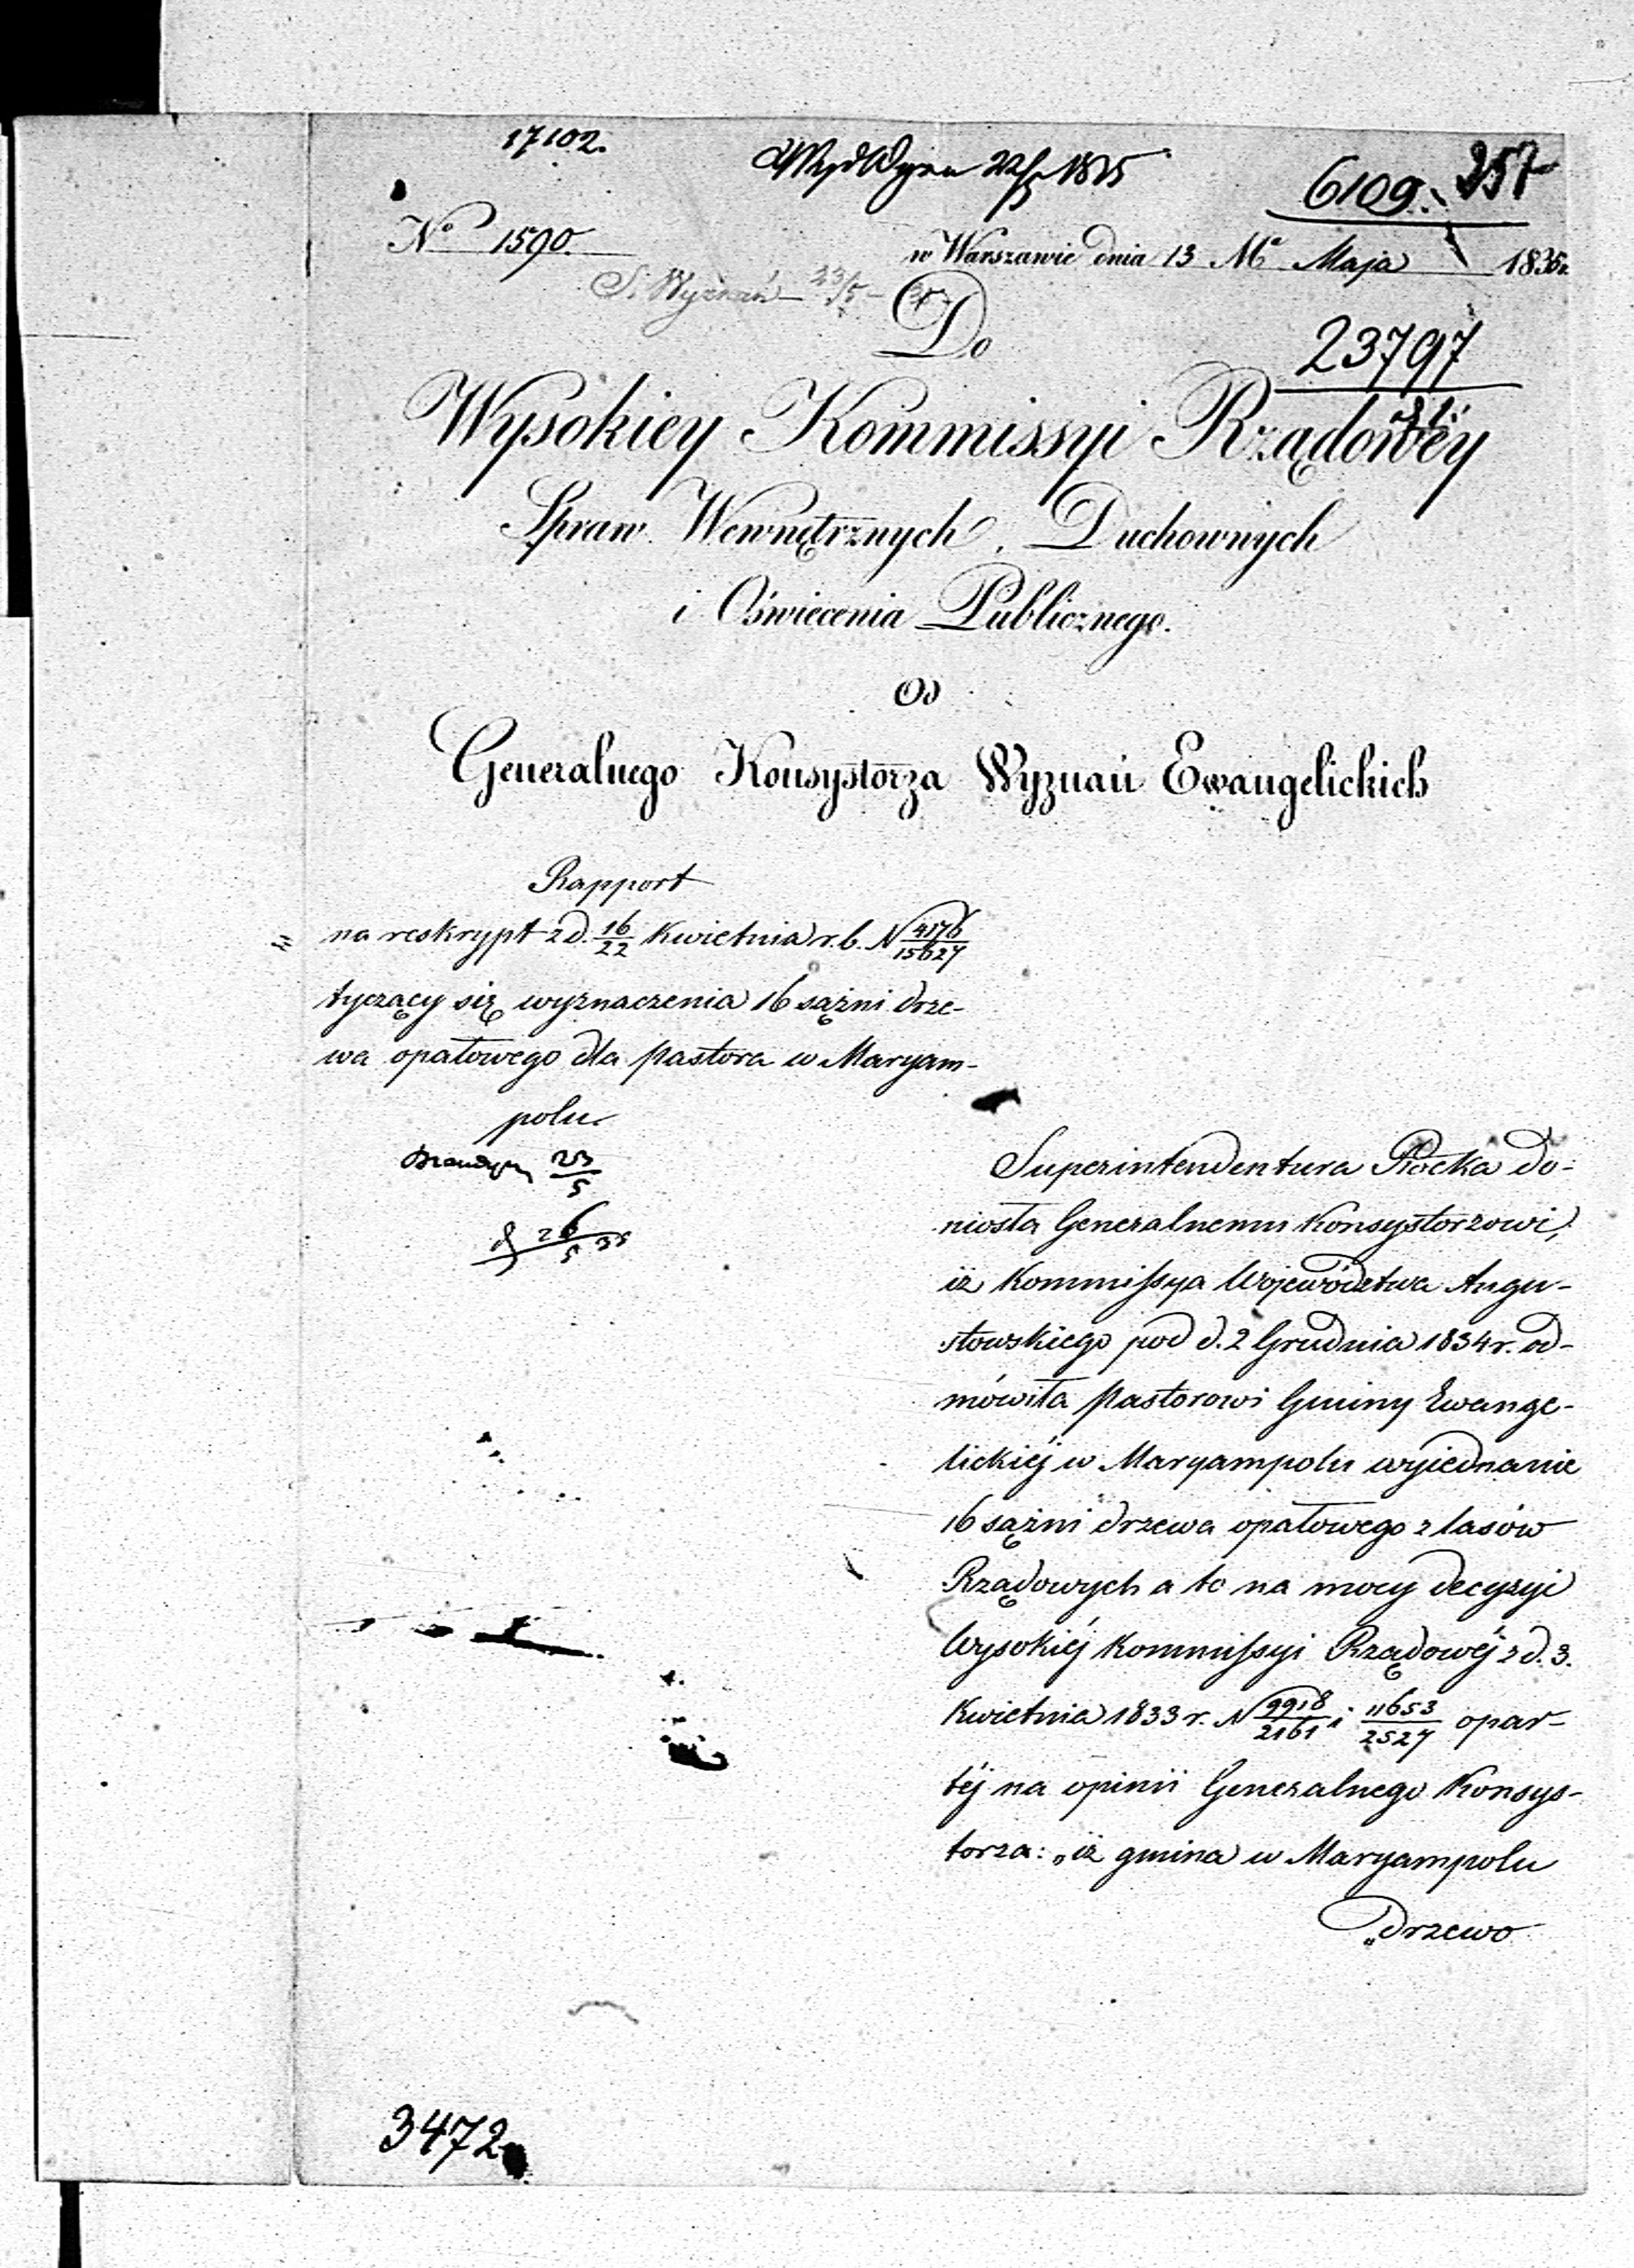 17102.
22/5 1835
6109. 257
No 1590.
w Warszawie dnia 13 Mca Maja 1835r.
S. Wyznań 23/5 - 35
Do
23797
Wysokiey Kommissyi Rządowey
Spraw Wewnętrznych, Duchownych
i Oświecenia Publicznego.
Od
Generalnego Konsystorza Wyznań Ewangelickich
Rapport
na reskrypt z d. 16/22 Kwietnia r. b. N 4176/15627
tyczący się wyznaczenia 16 sążni drze-
wa opałowego dla Pastora w Maryam-
polu
23/5
26/5 35
Superintendentura Płocka do-
niosła Generalnemu Konsystorzowi,
iż Kommissya Województwa Augu-
stowskiego pod d. 2 Grudnia 1834 r. od-
mówiła Pastorowi Gminy Ewange-
lickiéj w Maryampolu wyiednanie
16 sążni drzewa opałowego z lasów
Rządowych a to na mocy decyzyi
Wysokiéj Kommissyi Rządowéj z d. 3.
Kwietnia 1833 r. N 9918/2161 i 11653/2527 opar-
téj na opinii Generalnego Konsys-
torza: „iż gmina w Maryampolu
„drzewo
3472